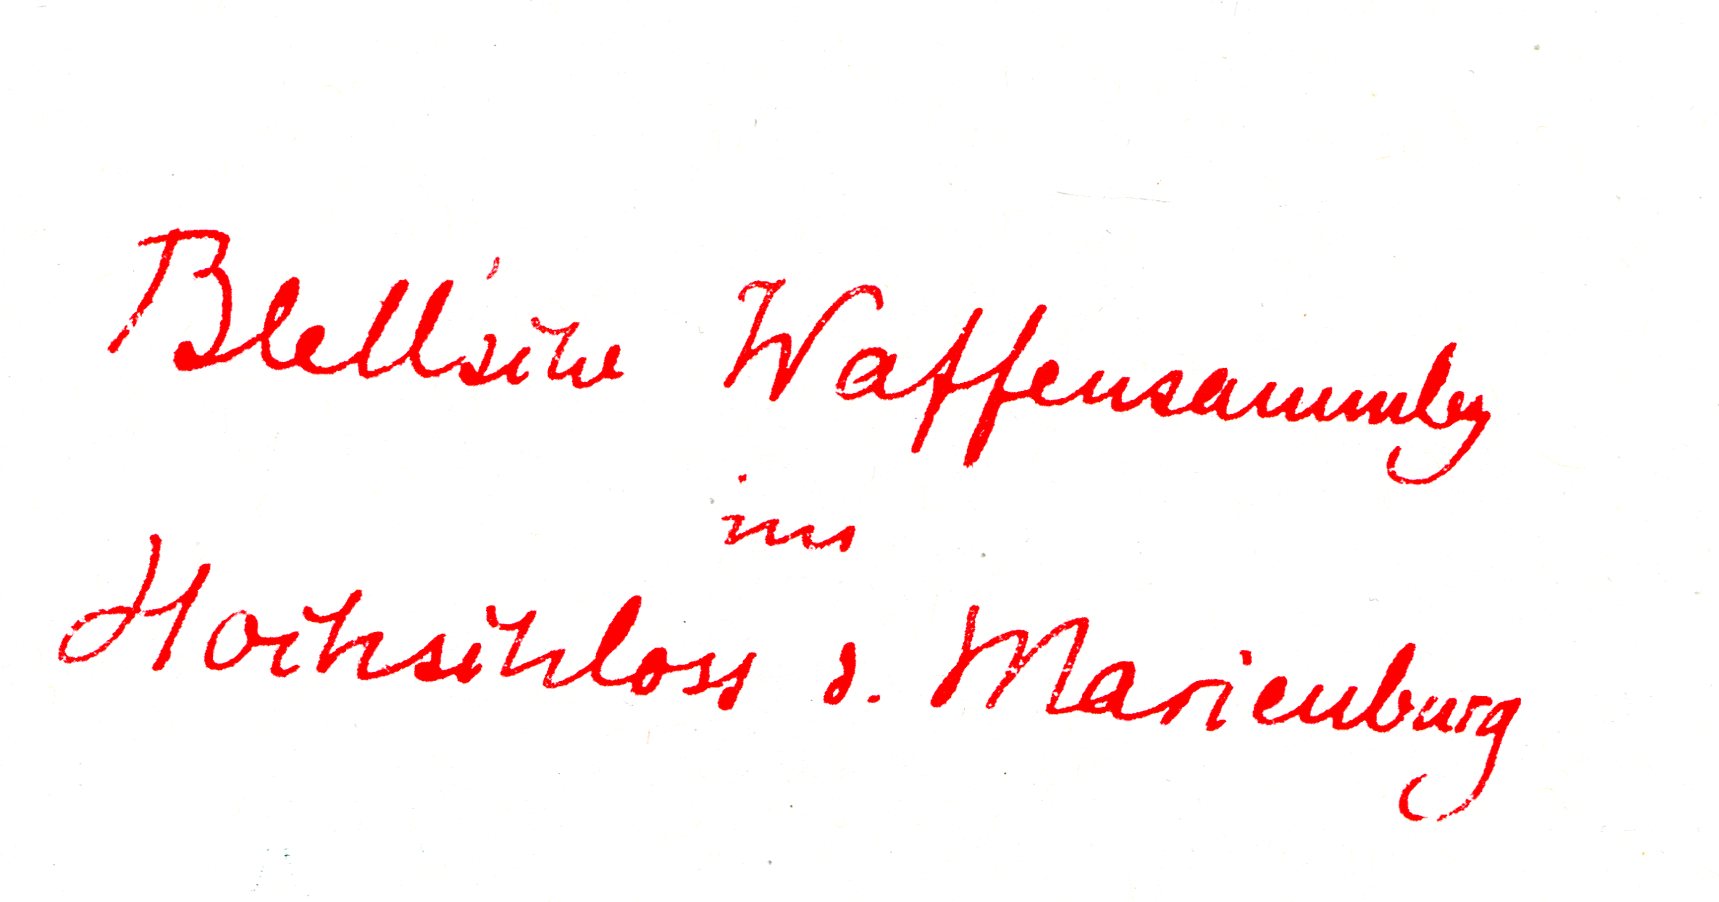 Blell'sche Waffensammlg
im
Hochschloss d. Marienburg